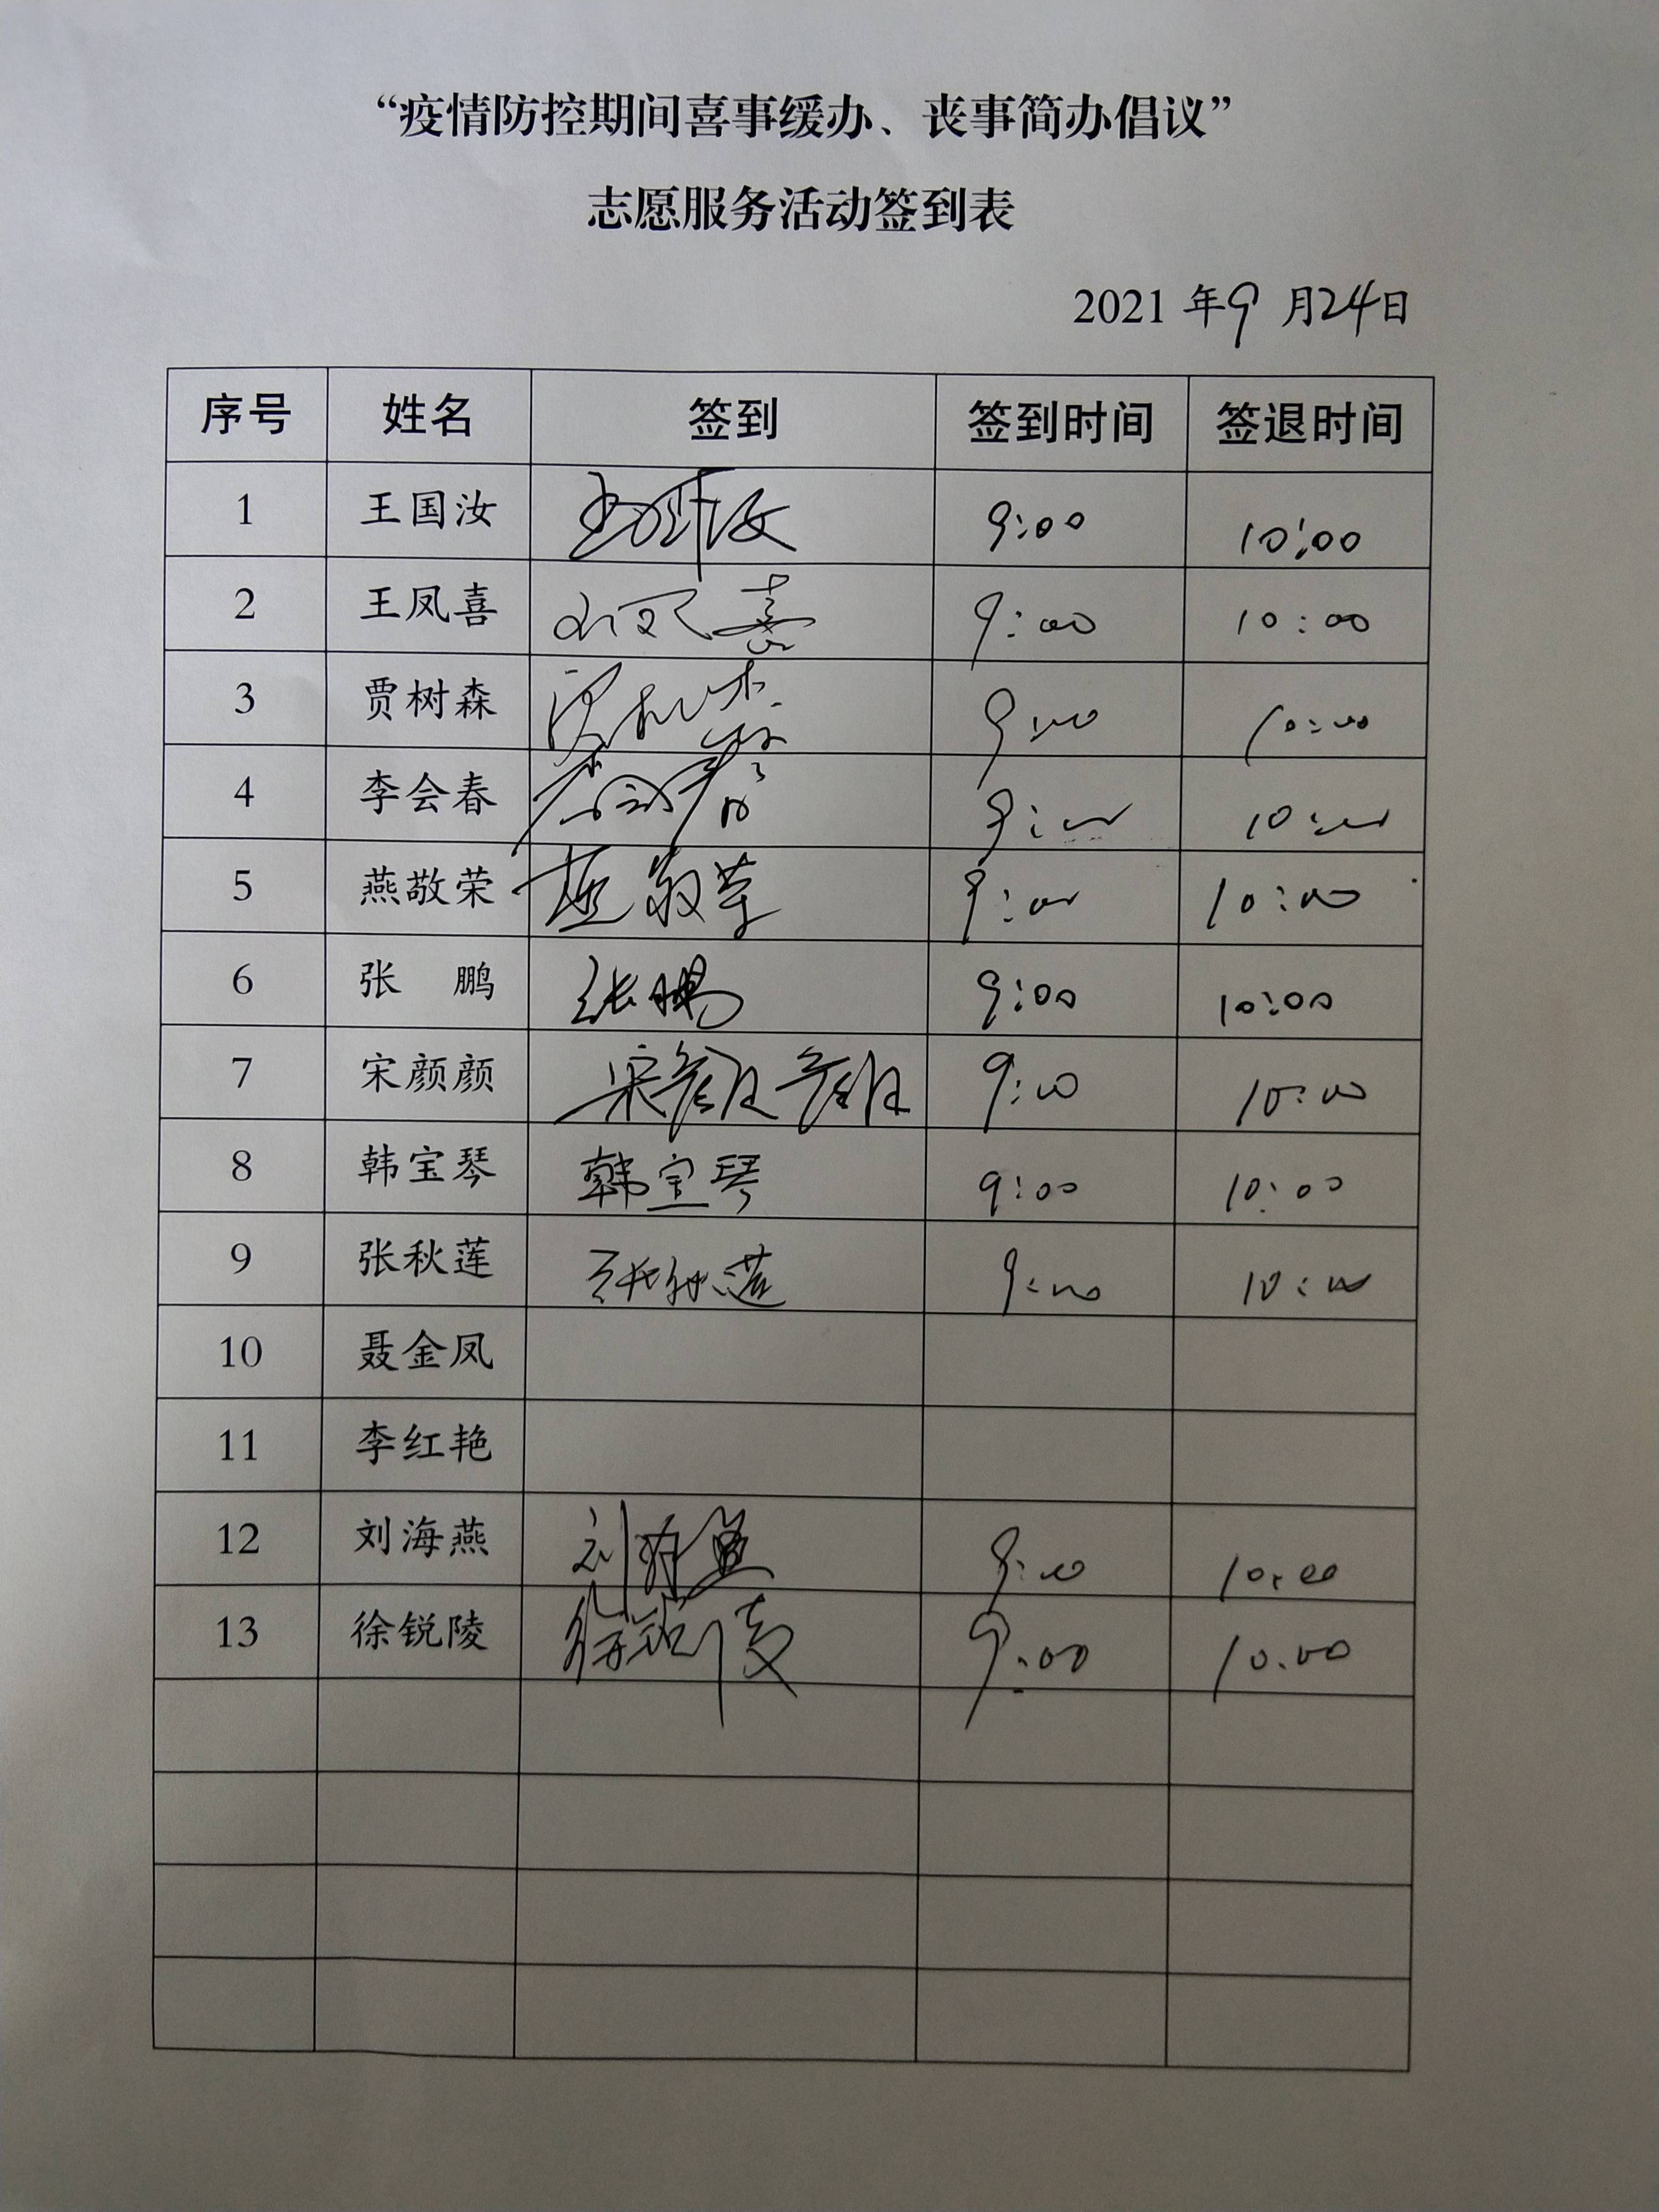 “疫情防控期间喜事缓办、丧事简办倡议”
志愿服务活动签到表
2021 年 9 月 24 日
序号 姓名 签到 签到时间 签退时间
1 王国汝 王国汝 9:00 10:00
2 王凤喜 王凤喜 9:00 10:00
3 贾树森 贾树森 9:00 10:00
4 李会春 李会春 9:00 10:00
5 燕敬荣 燕敬荣 9:00 10:00
6 张 鹏 张鹏 9:00 10:00
7 宋颜颜 宋颜颜 9:00 10:00
8 韩宝琴 韩宝琴 9:00 10:00
9 张秋莲 张秋莲 9:00 10:00
10 聂金凤
11 李红艳
12 刘海燕 刘海燕 9:00 10:00
13 徐锐陵 徐锐陵 9:00 10:00